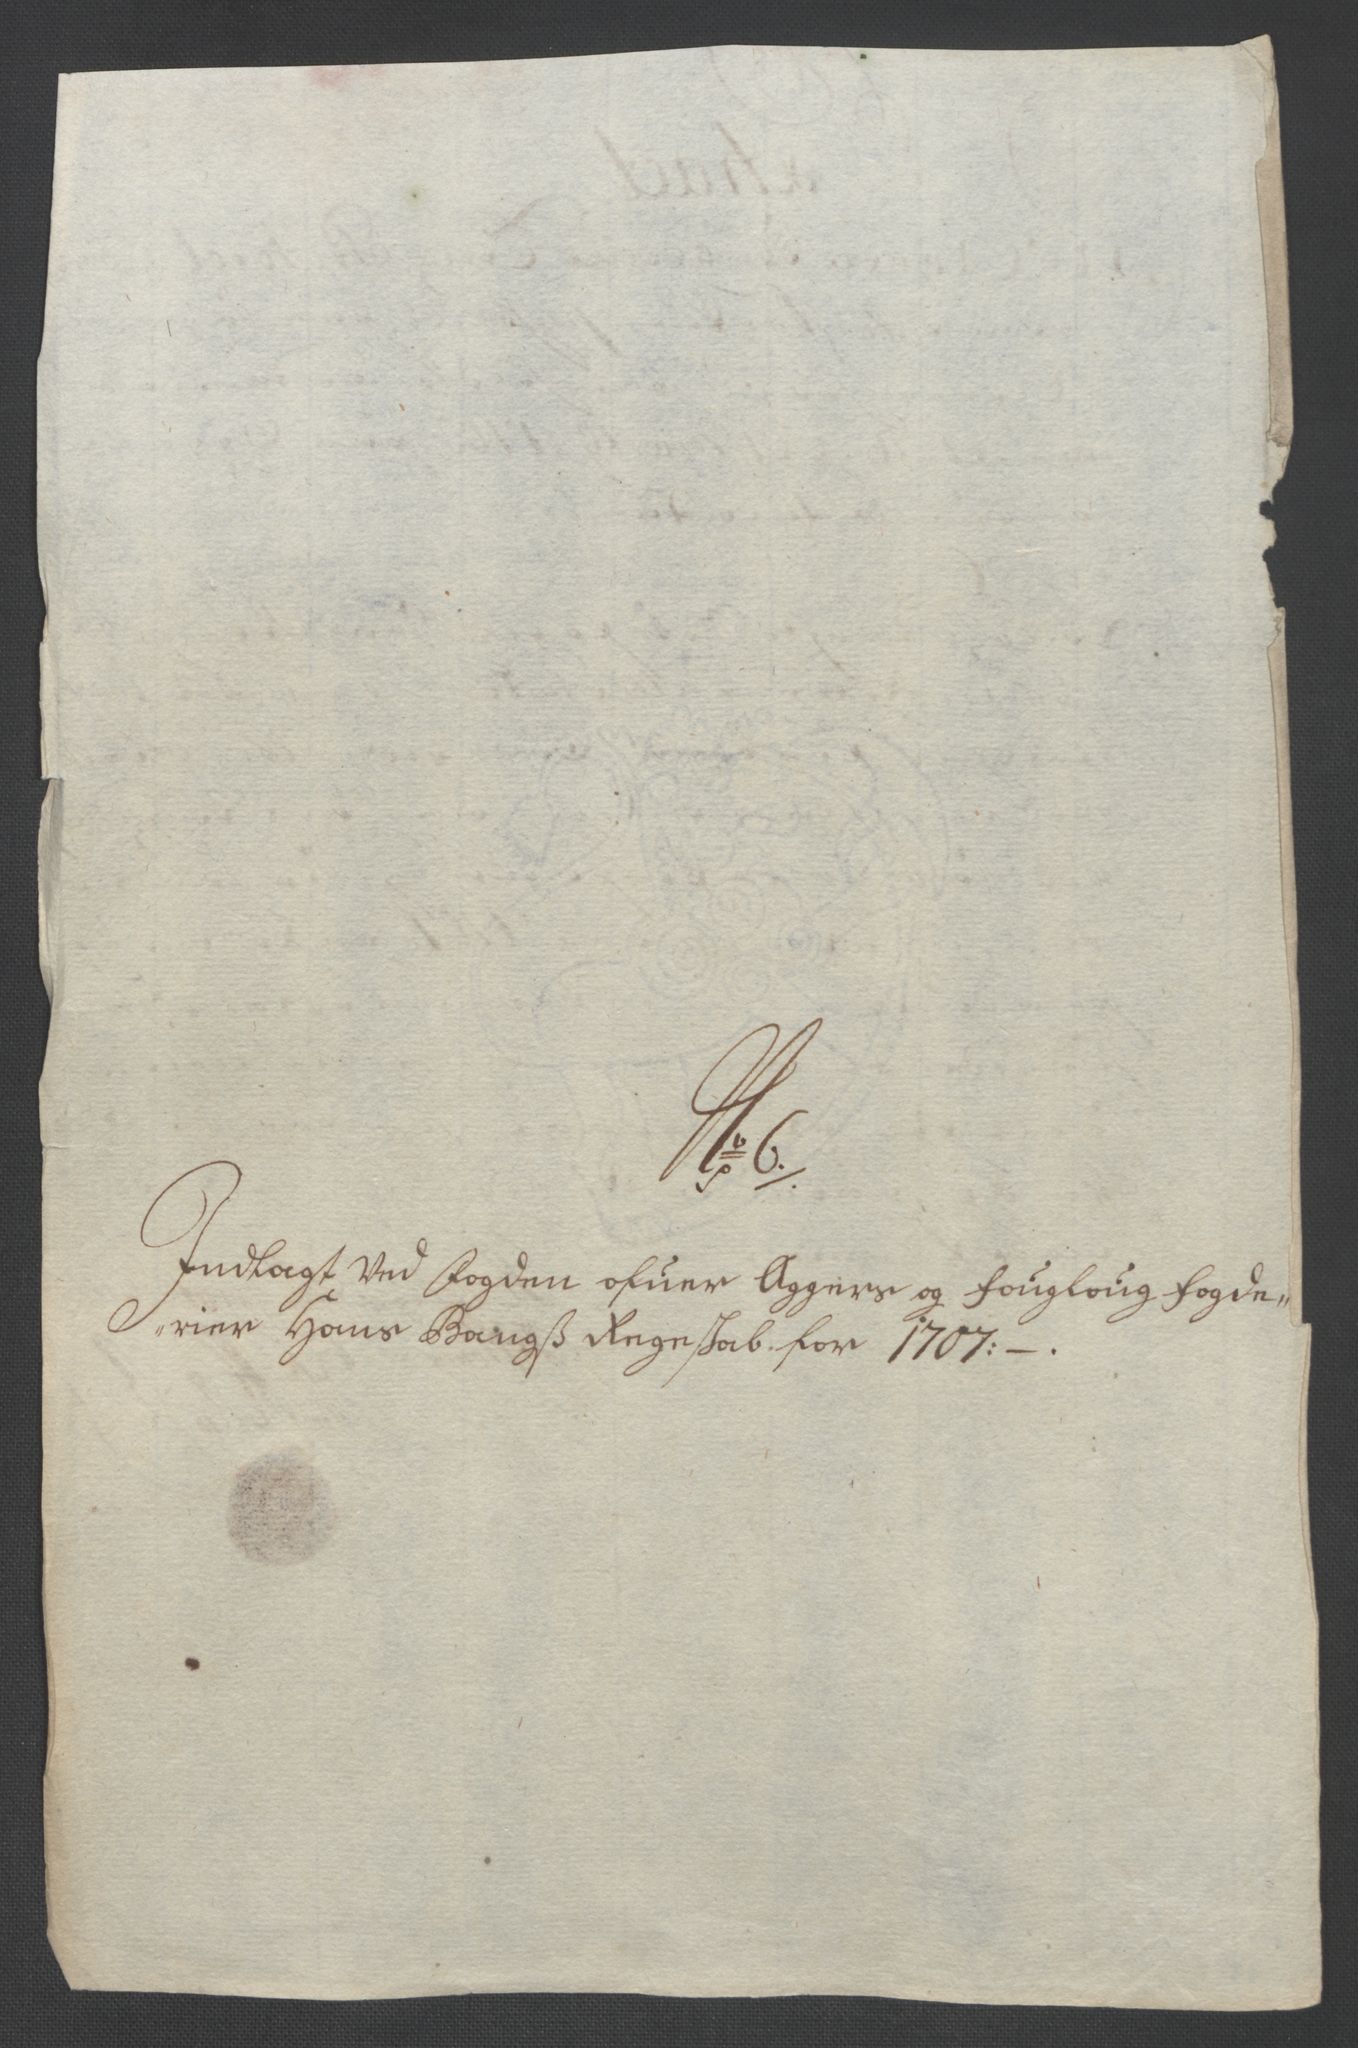 No 6.
Indlagt Ved Fogden ofuer Aggers og Fougloug fogde„
„rier Hans Bangß Regeskab for 1707:—.